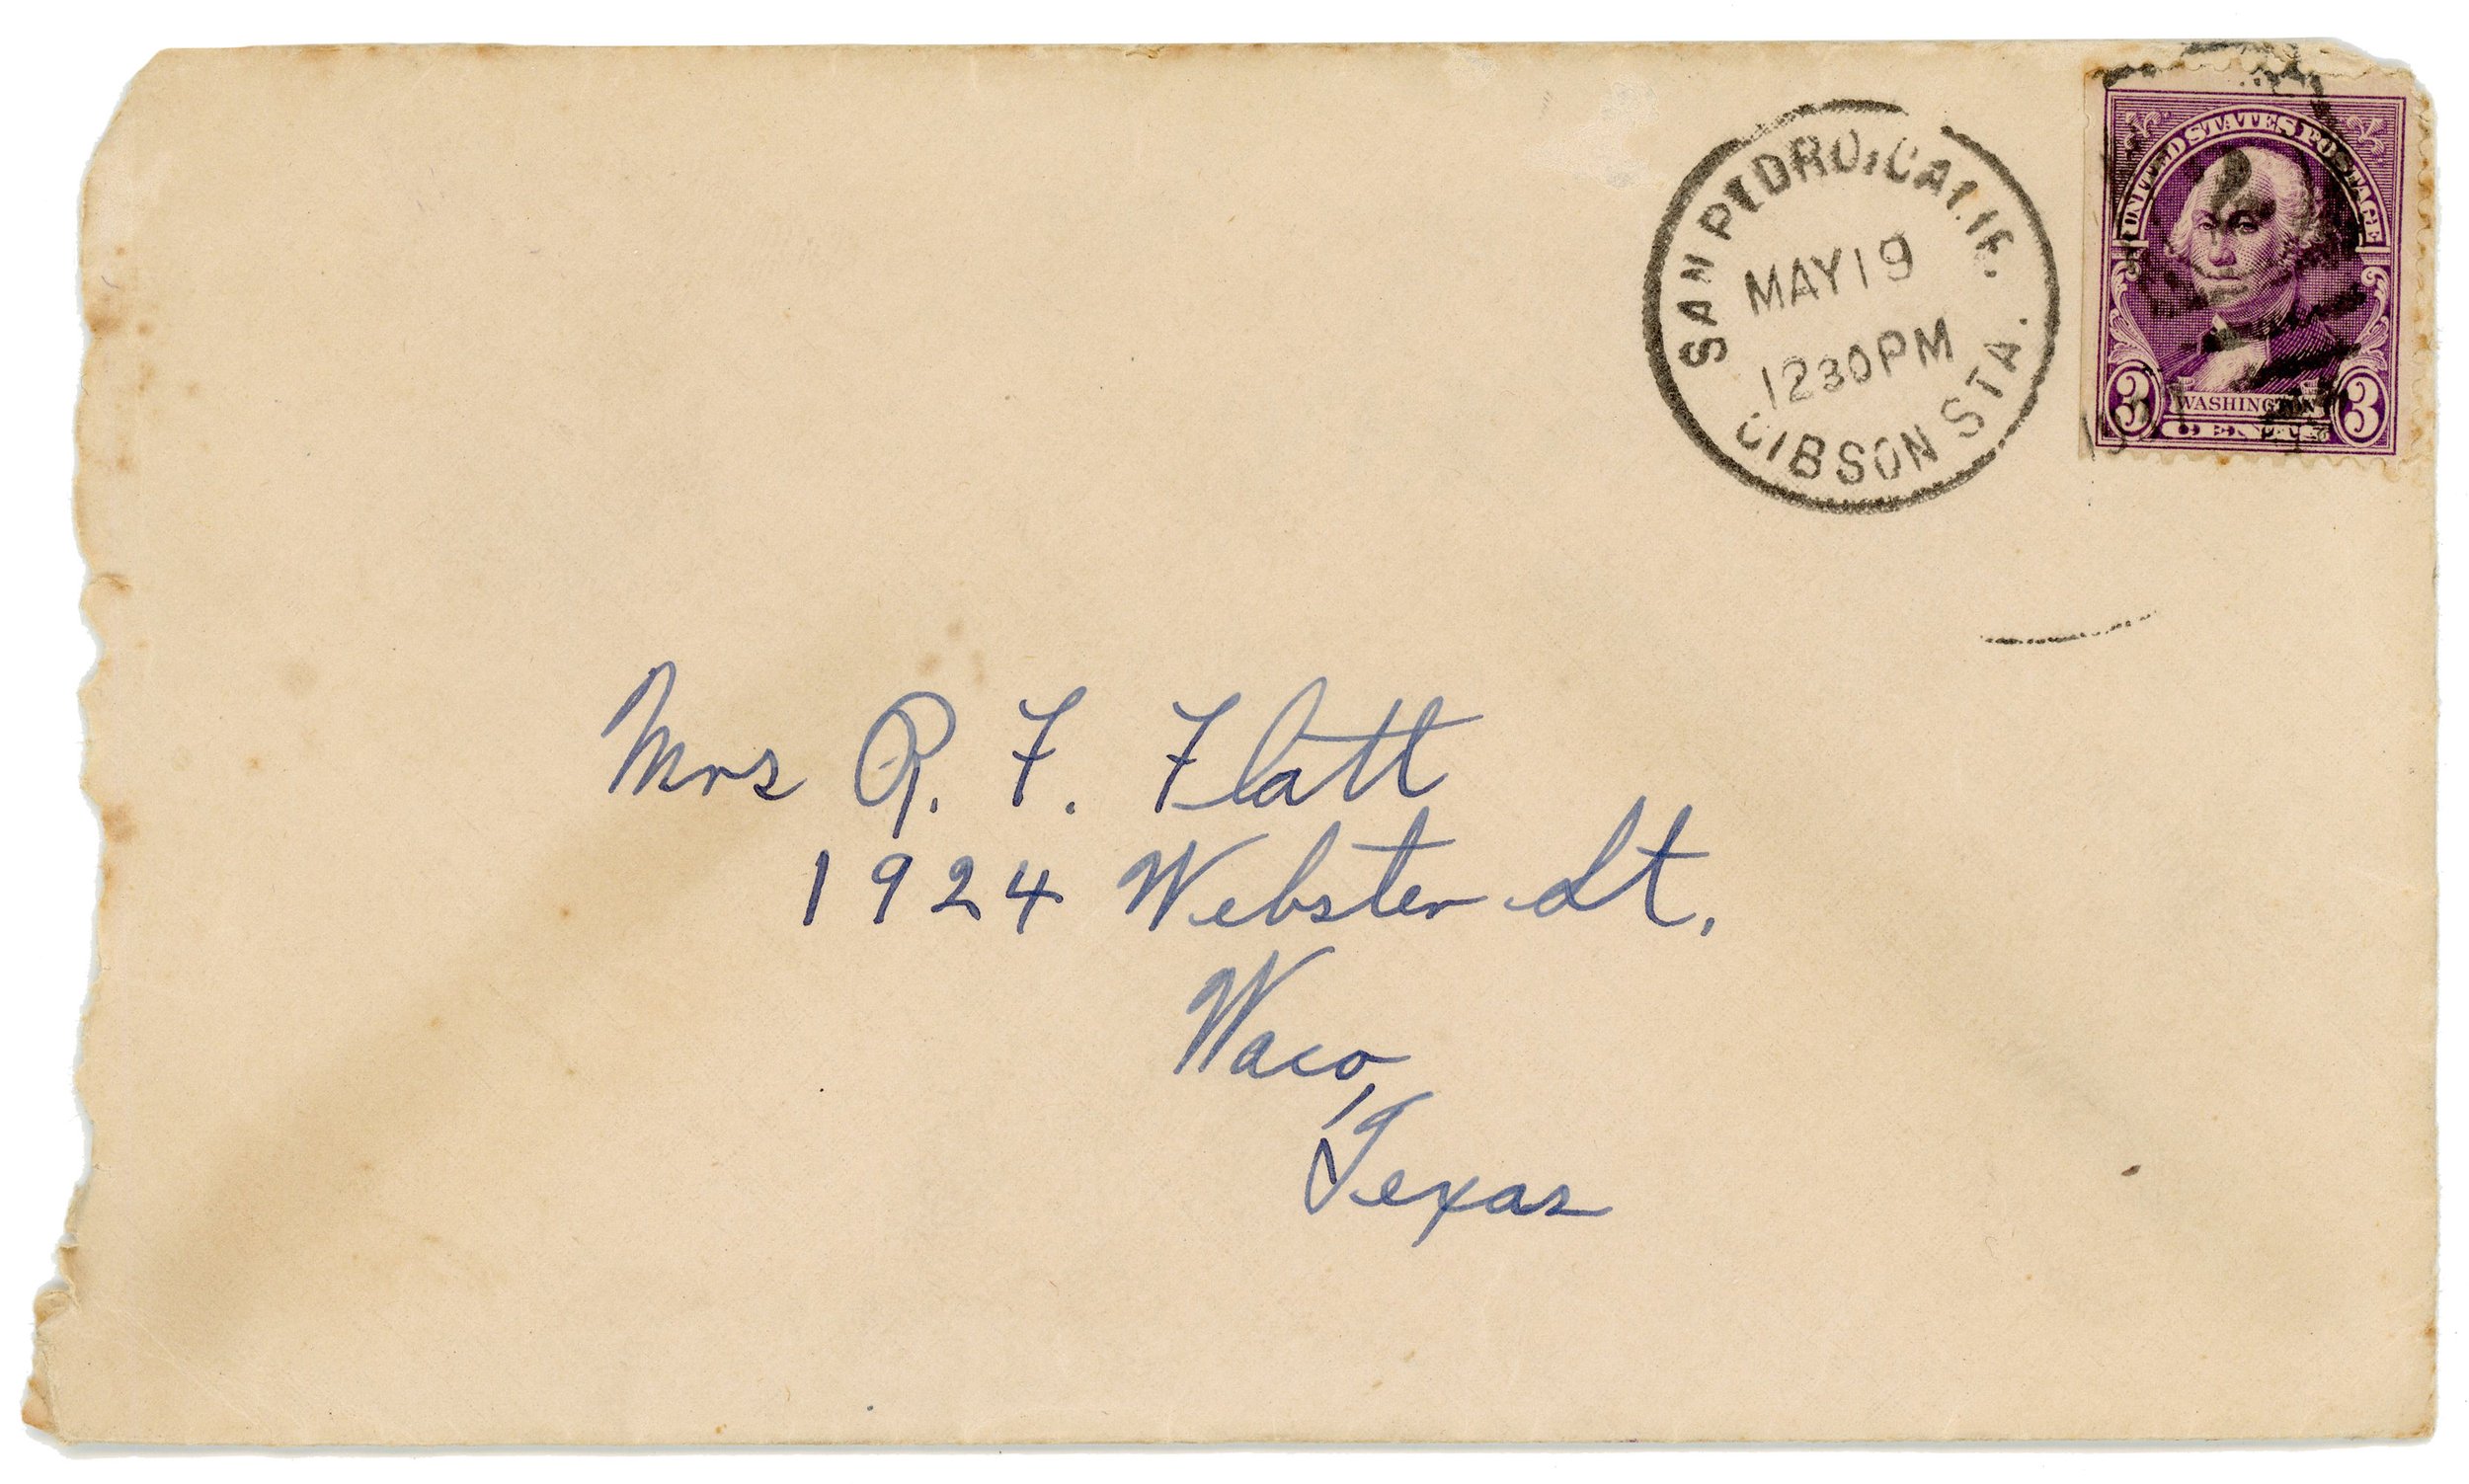 SAN PEDRO, CALIF.
MAY 19
1230 PM
GIBSON STA.
UNITED STATES POSTAGE
3 WASHINGTON 3
CENTS
Mrs R. F. Flatt
1924 Webster St.
Waco,
Texas